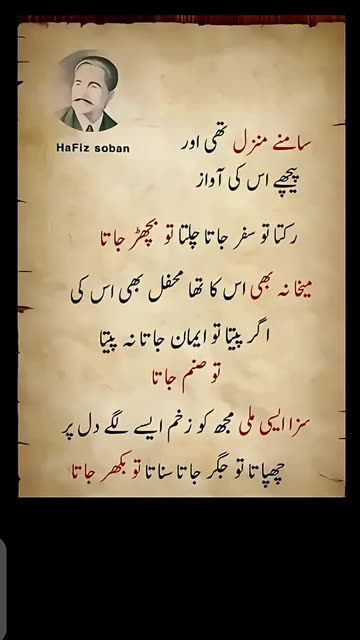 HaFiz soban
سامنے منزل تھی اور
پیچھے اس کی آواز
رکتا تو سفر جاتا چلتا تو بچھڑ جاتا
میخانہ بھی اس کا تھا محفل بھی اس کی
اگر پیتا تو ایمان جاتا نہ پیتا
تو صنم جاتا
سزا ایسی ملی مجھ کو زخم ایسے لگے دل پر
چھپاتا تو جگر جاتا سناتا تو بکھر جاتا